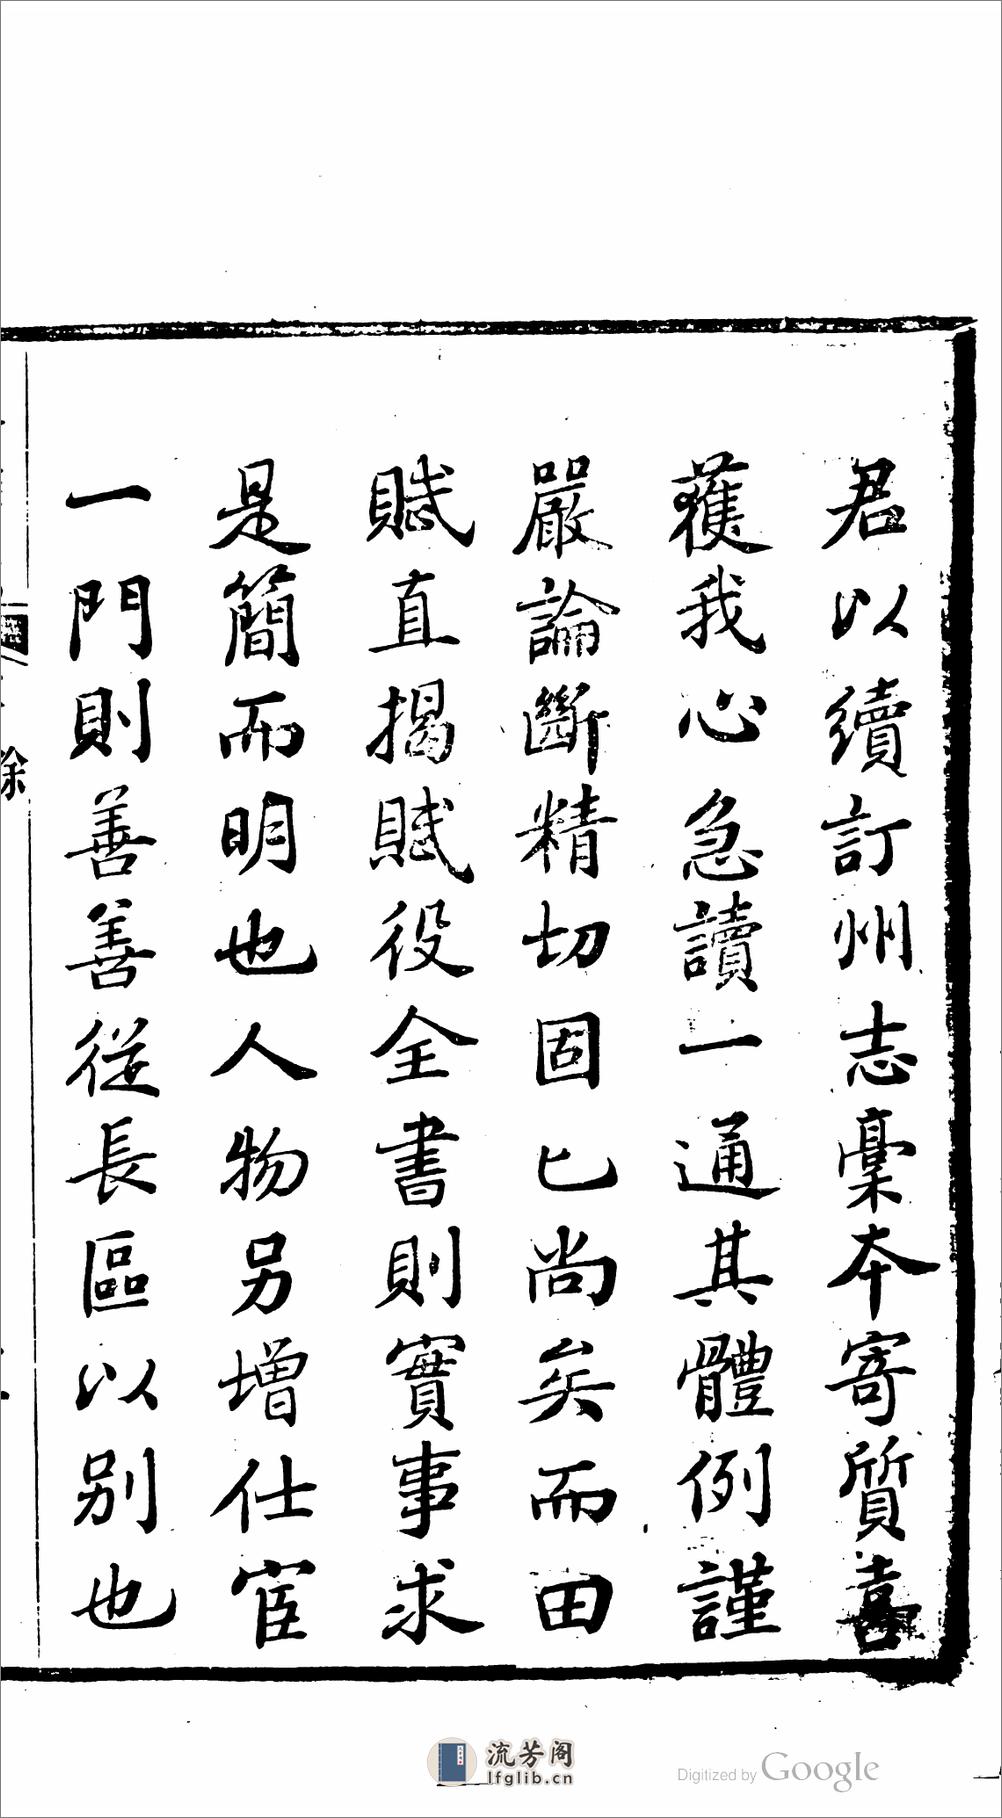 君以續訂州志稾本寄質喜
獲我心急讀一通其體例謹
嚴論斷精切固已尚矣而田
賦直揭賦役全書則實事求
是簡而明也人物另增仕宦
一門則善善從長區以别也
徐
流芳阁
lfglib.cn
Digitized by Google